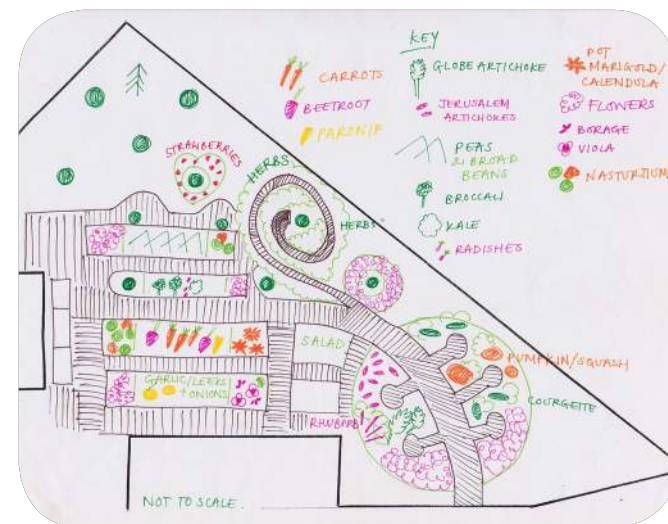 KEY
CARROTS
BEETROOT
PARSNIP
GLOBE ARTICHOKE
JERUSALEM
ARTICHOKES
PEAS
& BROAD
BEANS
BROCCALI
KALE
RADISHES
POT
MARIGOLD/
CALENDULA
FLOWERS
BORAGE
VIOLA
NASTURTIUM
STRAWBERRIES
HERBS
HERBS
SALAD
PUMPKIN/SQUASH
GARLIC/LEEKS
+ ONIONS
COURGETTE
RHUBARB
NOT TO SCALE.